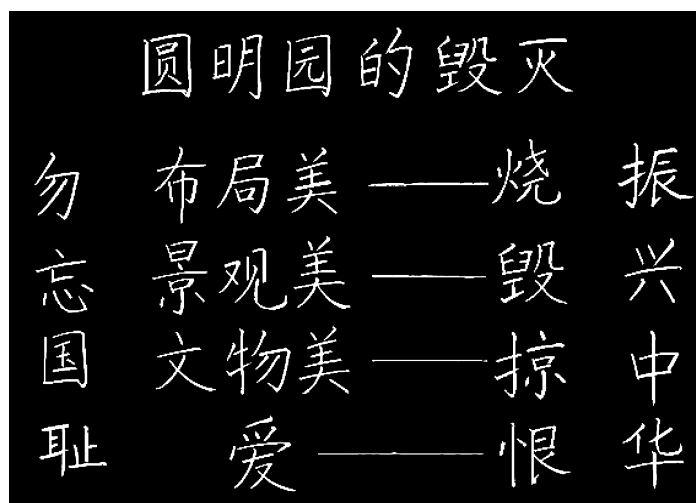 圆明园的毁灭
勿 布局美——烧 振
忘 景观美——毁 兴
国 文物美——掠 中
耻 爱——恨 华